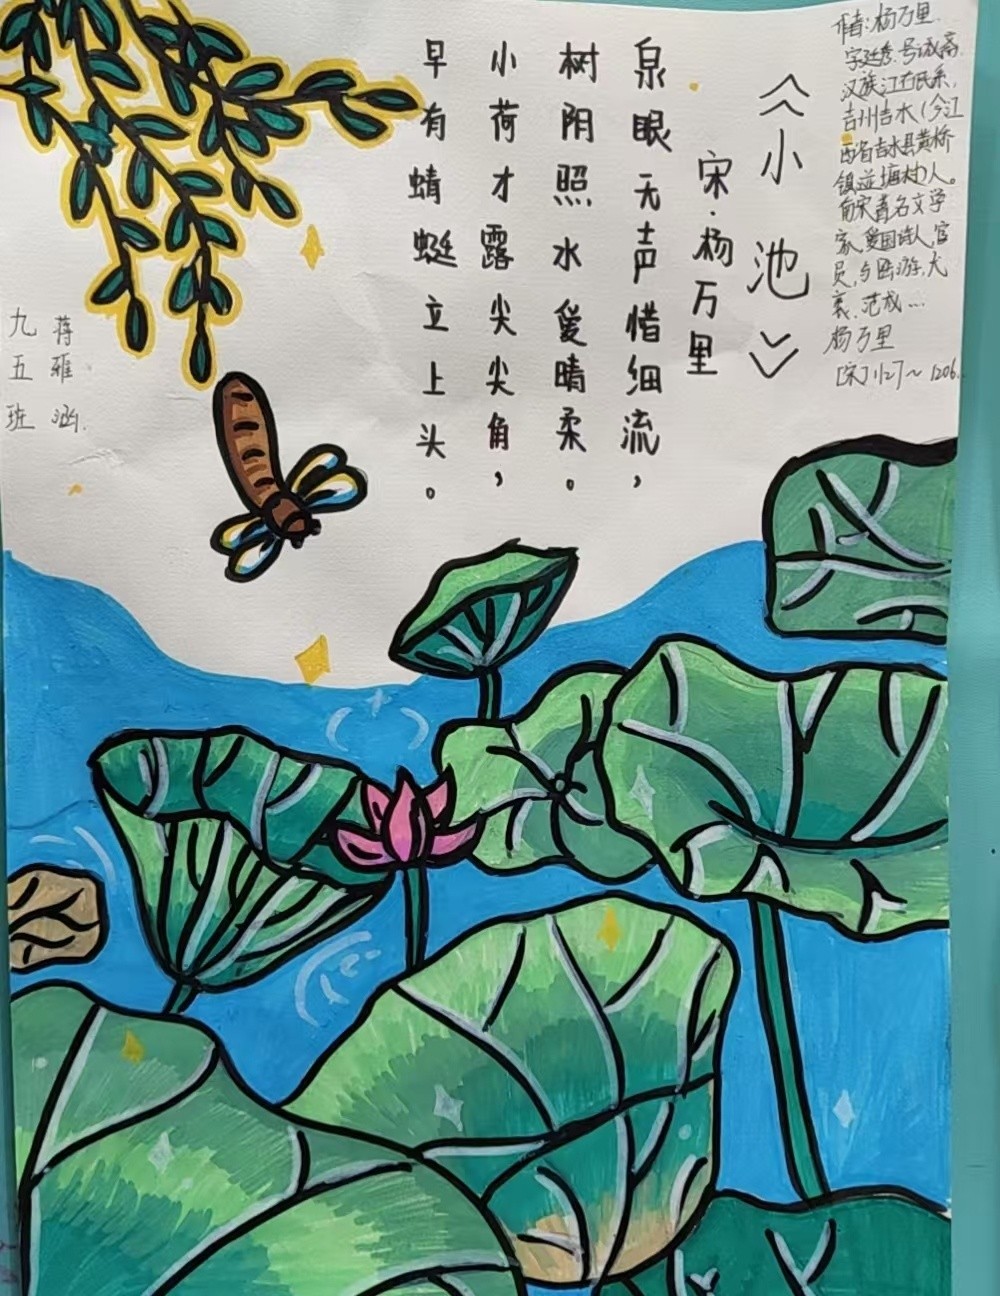 《小池》
宋·杨万里
泉眼无声惜细流，
树阴照水爱晴柔。
小荷才露尖尖角，
早有蜻蜓立上头。
作者：杨万里.
字廷秀.号诚斋.
汉族江右民系，
吉州吉水（今江
西省吉水县黄桥
镇湴塘村）人。
南宋著名文学
家、爱国诗人、官
员，与陆游、尤
袤、范成…
杨万里
[宋]1127～1206.
蒋雅涵.
九五班